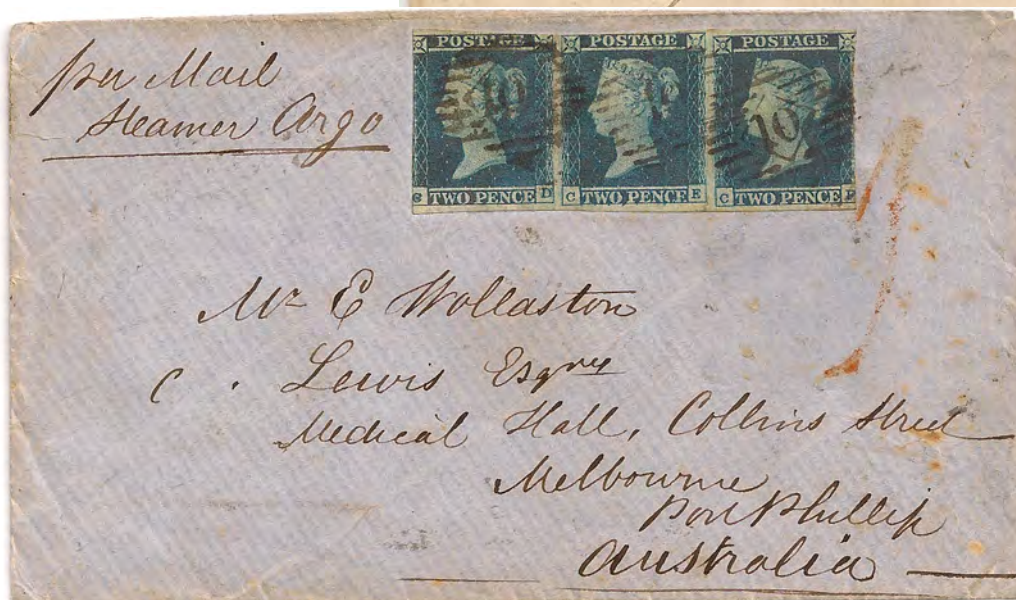 per Mail
Steamer Argo
POSTAGE POSTAGE POSTAGE
10
TWO PENCE D C TWO PENCE E C TWO PENCE F
Mr E Wollaston
C . Lewis Esqre
Medical Hall, Collins Street
Melbourne
Port Phillip
Australia